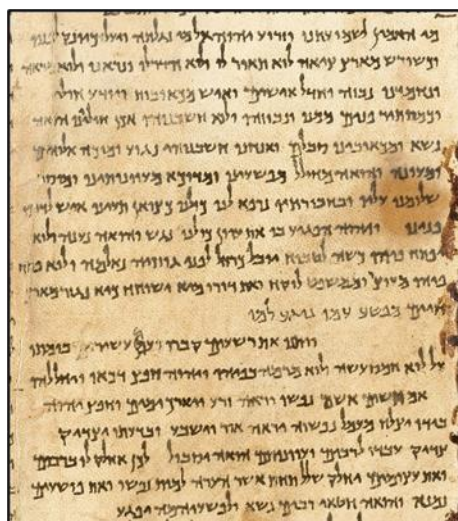 מי האמין לשמועתנו וזרוע יהוה אל מי נגלתה ויעל כיונק לפניו
וכשורש מארץ ציה לוא תואר לו ולוא הדר לו ונראנו ולוא מראה
ונחמדנו נבזה וחדל אישים ואיש מכאובות ויודע חולי
וכמסתר פנים ממנו ונבוזהו ולוא חשבנוהו אכן חוליינו הואה
נשא ומכאובינו סבלם ואנחנו חשבנוהו נגוע ומוכה אלוהים
ומעונה והואה מחולל מפשעינו ומדוכא מעוונותינו ומוסר
שלומנו עליו ובחבורתיו נרפא לנו כולנו כצואן תעינו איש לדרכו
פנינו ויהוה הפגיע בו את עוון כולנו נגש והואה נענה ולוא
יפתח פיהו כשה לטבוח יובל כרחל לפני גוזזיה נאלמה ולוא פתח
פיהו מעוצר וממשפט לוקח ואת דורו מיא ישוחח כיא נגזר מארץ
חיים מפשע עמו נוגע למו
ויתנו את רשעים קברו ועם עשיר בומתו
על לוא חמס עשה ולוא מרמה בפיהו ויהוה חפץ דכאו ויחללהו
אם תשים אשם נפשו יראה זרע ויארך ימים וחפץ יהוה
בידו יצלח מעמל נפשוה יראה אור וישבע ובדעתו יצדיק
צדיק עבדו לרבים ועוונותם הואה יסבול לכן אחלק לו ברבים
ואת עצומים יחלק שלל תחת אשר הערה למות נפשו ואת פושעים
נמנא והואה חטאי רבים נשא ולפשעיהמה יפגע